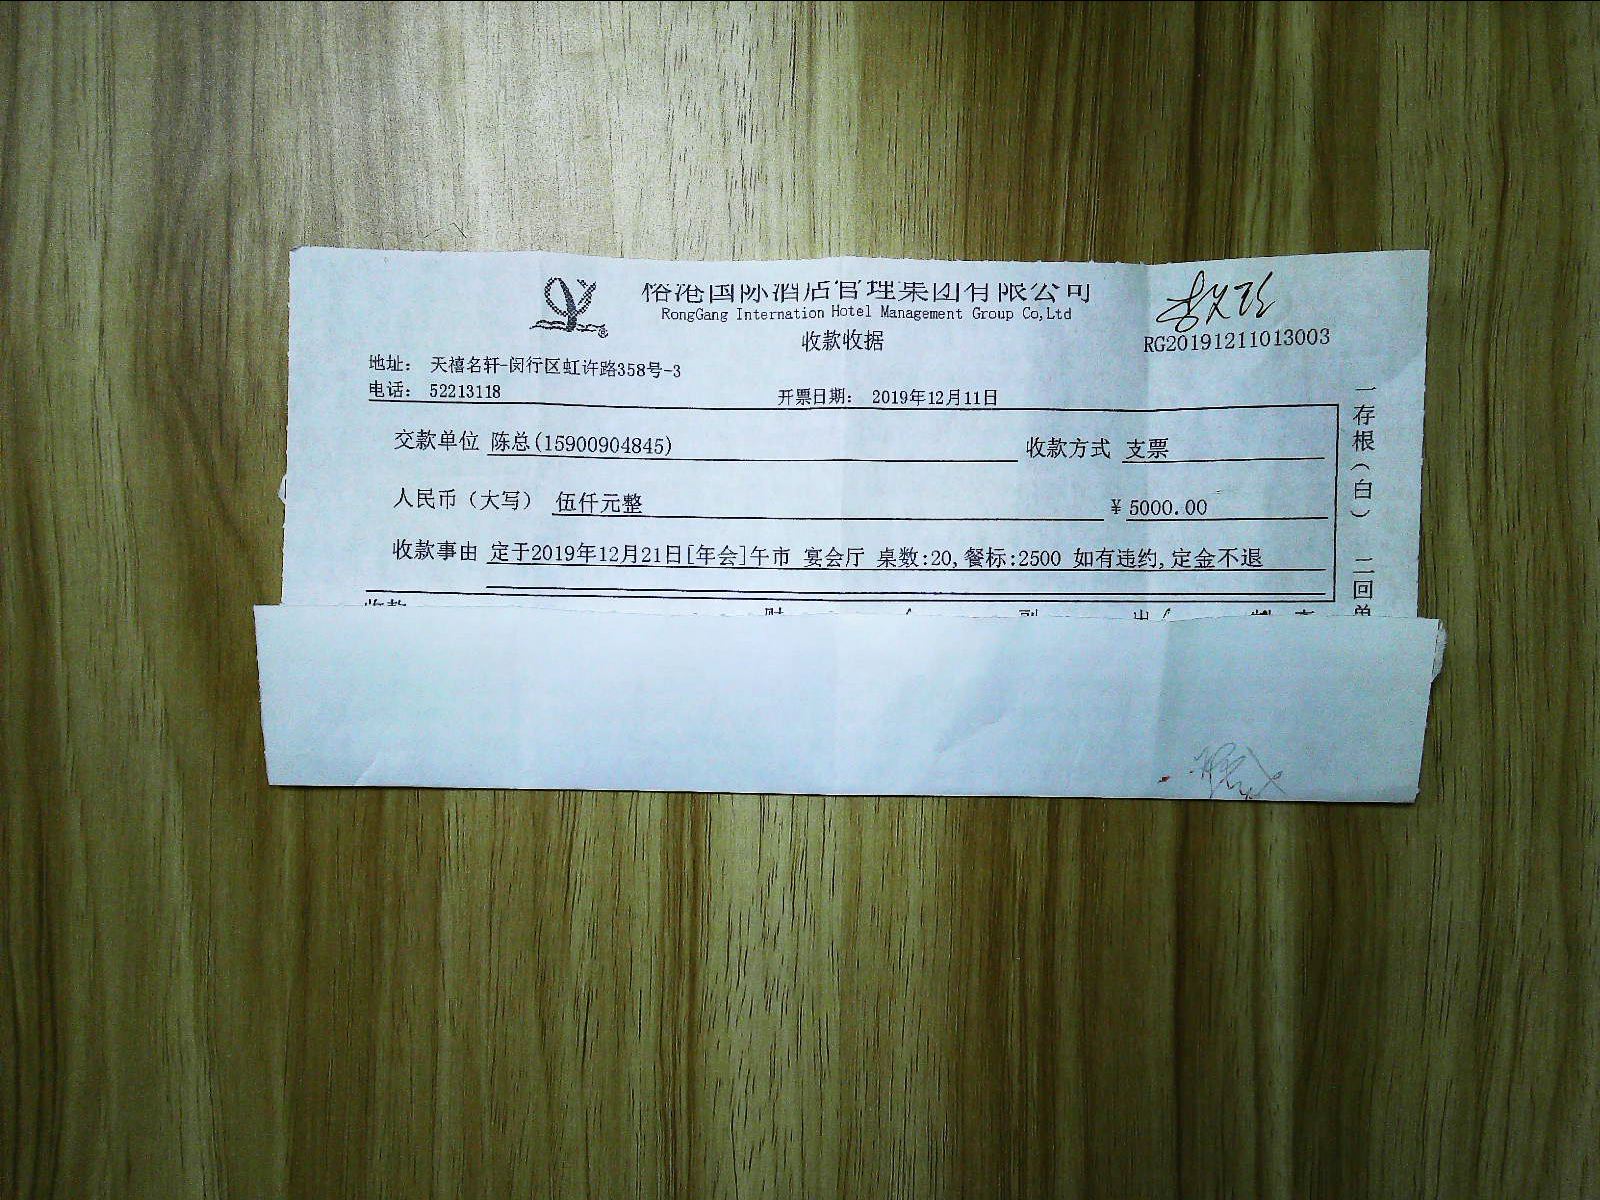 榕港国际酒店管理集团有限公司
RongGang Internation Hotel Management Group Co,Ltd
收款收据
RG20191211013003
地址： 天禧名轩-闵行区虹许路358号-3
电话： 52213118
开票日期： 2019年12月11日
交款单位 陈总(15900904845)
收款方式 支票
人民币（大写） 伍仟元整
¥ 5000.00
收款事由 定于2019年12月21日[年会]午市 宴会厅 桌数:20,餐标:2500 如有违约,定金不退
一存根（白） 二回单